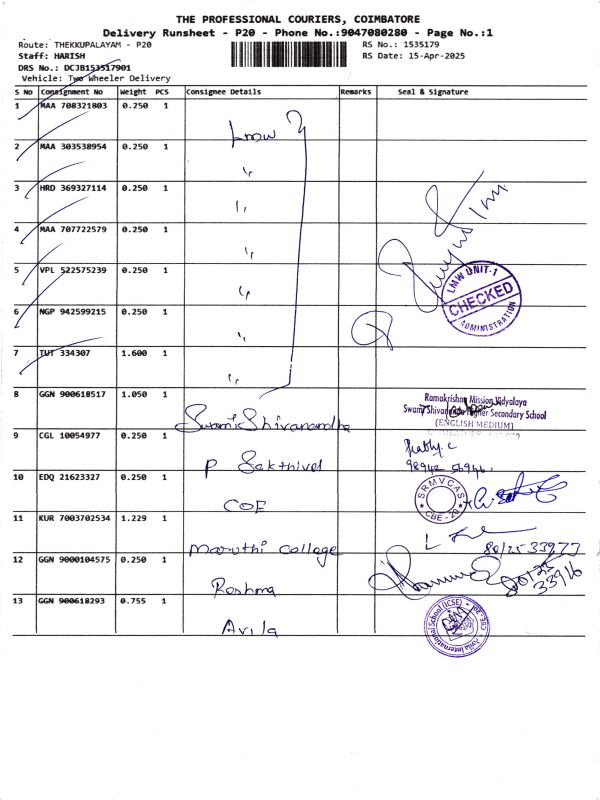 THE PROFESSIONAL COURIERS, COIMBATORE
Delivery Runsheet - P20 - Phone No.:9047080280 - Page No.:1
Route: THEKKUPALAYAM - P20
RS No.: 1535179
Staff: HARISH
RS Date: 15-Apr-2025
DRS No.: DCJB153517901
Vehicle: Two Wheeler Delivery
S No Consignment No Weight PCS Consignee Details Remarks Seal & Signature
1 MAA 708321803 0.250 1 Lmw
2 MAA 303538954 0.250 1 "
3 HRD 369327114 0.250 1 "
4 MAA 707722579 0.250 1 "
5 VPL 522575239 0.250 1 "
LMW UNIT-1
CHECKED
ADMINISTRATION
6 NGP 942599215 0.250 1 "
7 TUT 334307 1.600 1 "
8 GGN 900618517 1.050 1 Swami Shivanandha
Ramakrishna Mission Vidyalaya
Swami Shivananda Higher Secondary School
(ENGLISH MEDIUM)
9 CGL 10054977 0.250 1 P Sakthivel
98942 56946
10 EDQ 21623327 0.250 1 COE
SRMVCAS
CBE - 20
11 KUR 7003702534 1.229 1 Maruthi College
80125 33977
12 GGN 9000104575 0.250 1 Reshma
80125
33916
13 GGN 900618293 0.755 1 Avila
Avila International School (ICSE)